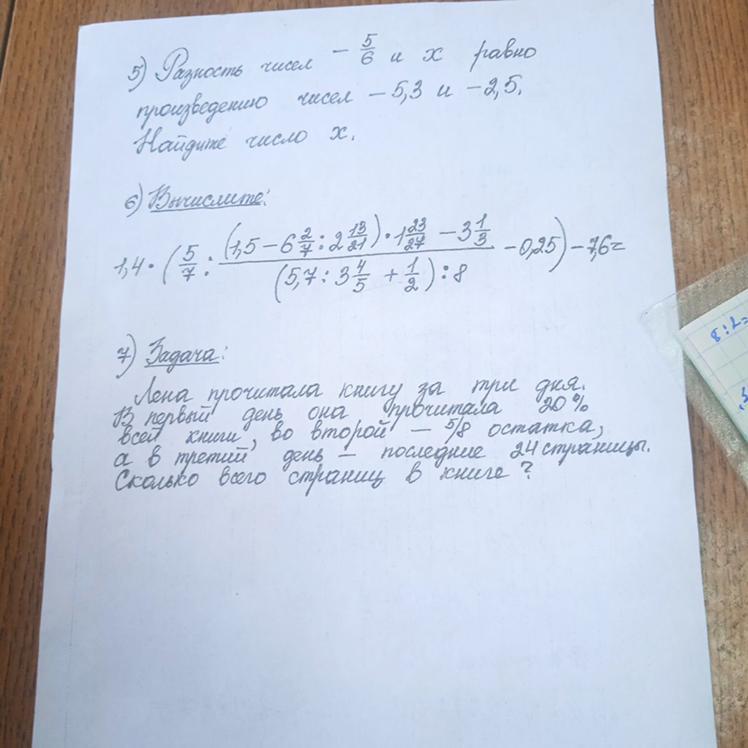 5) Разность чисел − 5/6 и x равно
произведению чисел − 5,3 и −2,5.
Найдите число x.
6) Вычислите:
1,4 · (5/7 : ((1,5 − 6 2/7 : 2 13/21) · 1 23/27 − 3 1/3)/((5,7 : 3 4/5 + 1/2) : 8) − 0,25) − 7,6 =
7) Задача:
Лена прочитала книгу за три дня.
В первый день она прочитала 20%
всей книги, во второй − 5/8 остатка,
а в третий день − последние 24 страницы.
Сколько всего страниц в книге?